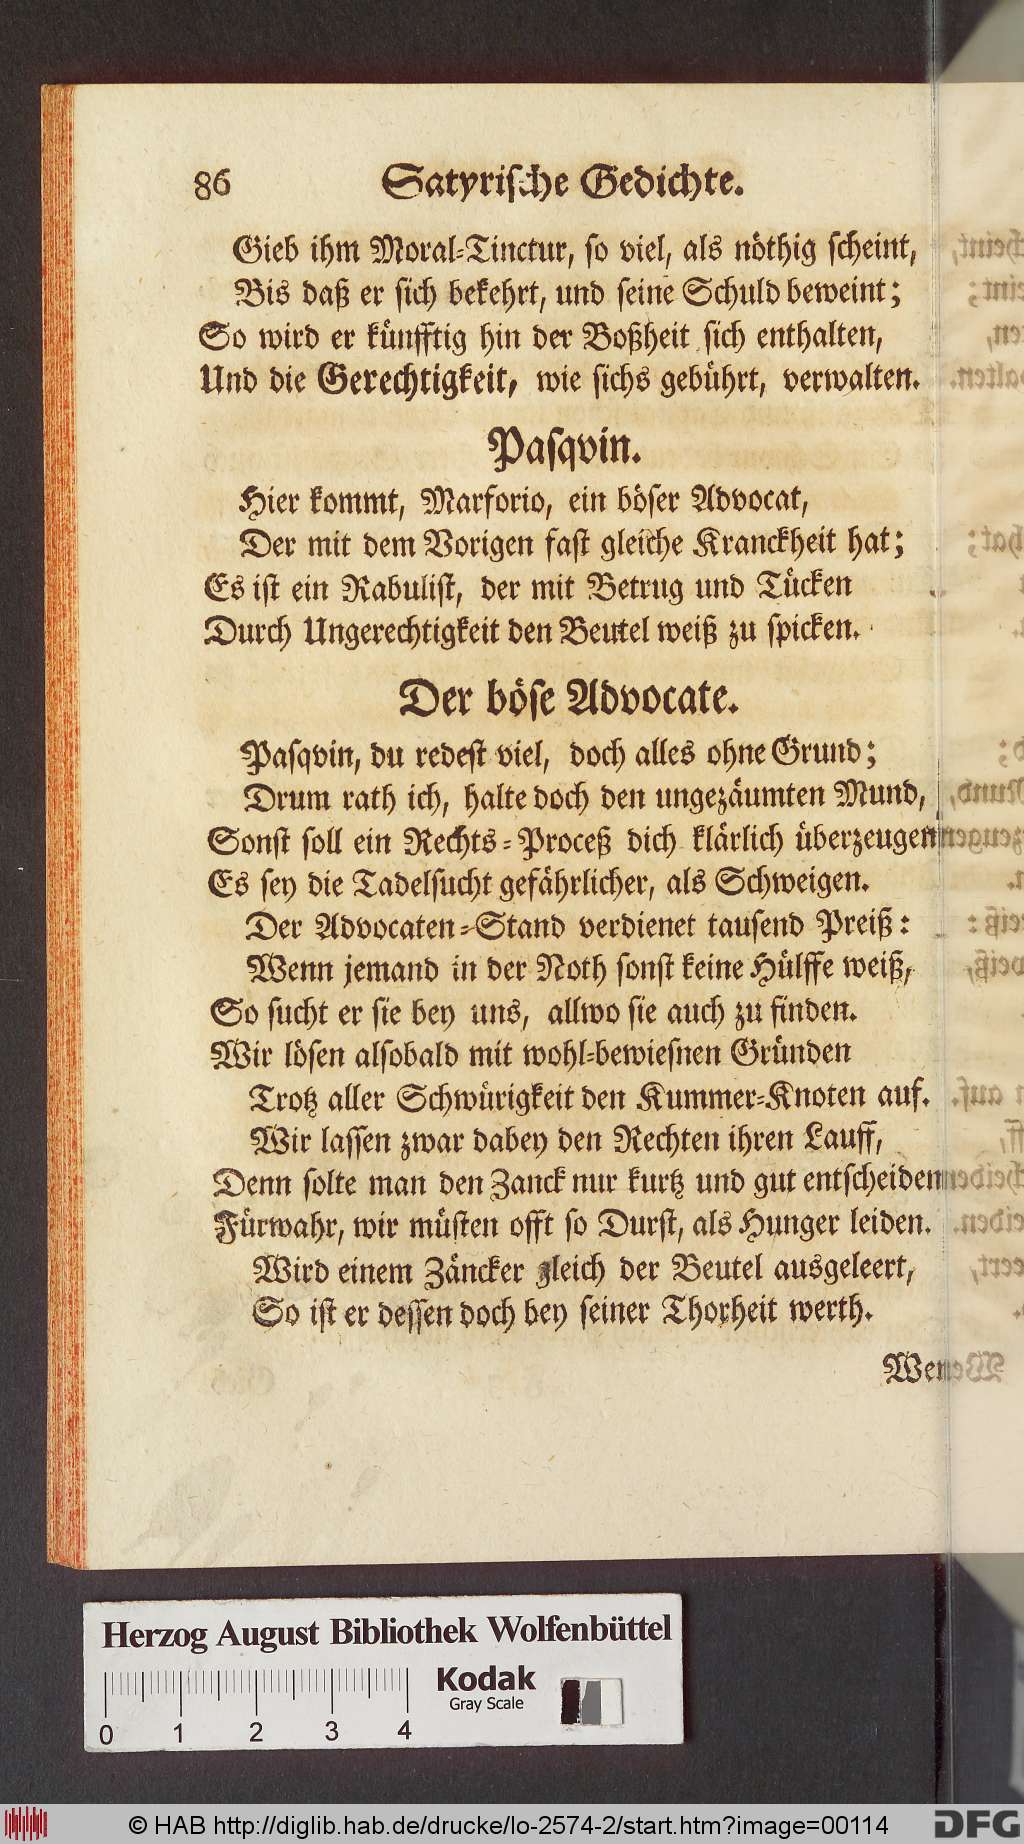 86 Satyrische Gedichte.
Gieb ihm Moral-Tinctur, so viel, als nöthig scheint,
Bis daß er sich bekehrt, und seine Schuld beweint;
So wird er künfftig hin der Boßheit sich enthalten,
Und die Gerechtigkeit, wie sichs gebührt, verwalten.
Pasqvin.
Hier kommt, Marforio, ein böser Advocat,
Der mit dem Vorigen fast gleiche Kranckheit hat;
Es ist ein Rabulist, der mit Betrug und Tücken
Durch Ungerechtigkeit den Beutel weiß zu spicken.
Der böse Advocate.
Pasqvin, du redest viel, doch alles ohne Grund;
Drum rath ich, halte doch den ungezäumten Mund,
Sonst soll ein Rechts-Proceß dich klärlich überzeugen
Es sey die Tadelsucht gefährlicher, als Schweigen.
Der Advocaten-Stand verdienet tausend Preiß:
Wenn jemand in der Noth sonst keine Hülffe weiß,
So sucht er sie bey uns, allwo sie auch zu finden.
Wir lösen alsobald mit wohl-bewiesnen Gründen
Trotz aller Schwürigkeit den Kummer-Knoten auf.
Wir lassen zwar dabey den Rechten ihren Lauff,
Denn solte man den Zanck nur kurtz und gut entscheiden
Fürwahr, wir müsten offt so Durst, als Hunger leiden.
Wird einem Zäncker gleich der Beutel ausgeleert,
So ist er dessen doch bey seiner Thorheit werth.
Herzog August Bibliothek Wolfenbüttel
Kodak
Gray Scale
0 1 2 3 4
© HAB http://diglib.hab.de/drucke/lo-2574-2/start.htm?image=00114
DFG